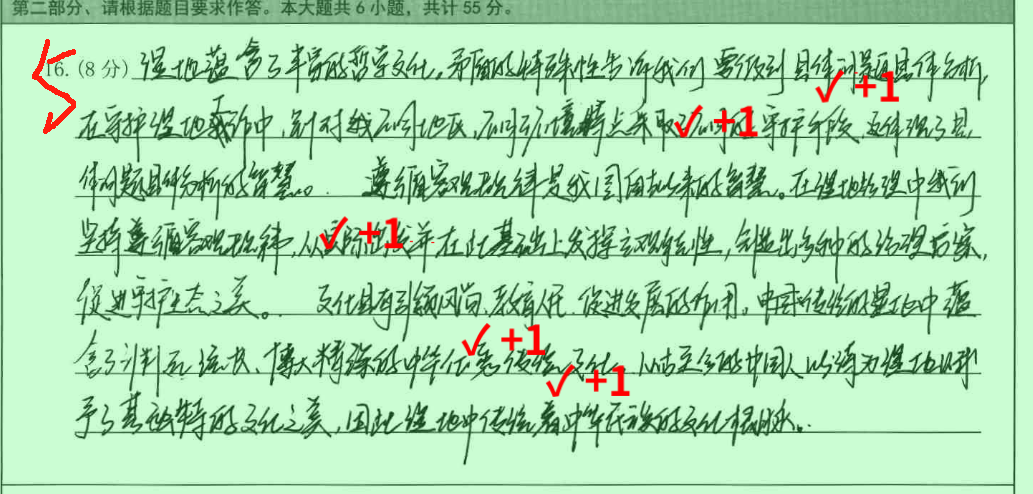 第二部分、请根据题目要求作答。本大题共 6 小题，共计 55 分。
5
16. (8 分) 湿地蕴含了丰富的哲学文化。矛盾的特殊性告诉我们要做到具体问题具体分析，
✓+1
在守护湿地中，针对我不同地区，不同环境特点采取不同的守护手段，体现了具
✓+1
体问题具体分析的智慧。 遵循客观规律是我国自古以来的智慧。在湿地治理中我们
坚持遵循客观规律，从实际出发并在此基础上发挥主观能动性，创造出多种的治理方案，
✓+1
促进守护生态之美。 文化具有引领风尚、教育人民、促进发展的作用。中国传统的湿地中蕴
含了源远流长、博大精深的中华优秀传统文化，从古至今的中国人以诗为湿地赋
✓+1
✓+1
予了其独特的文化之美，因此湿地中传续着中华民族的文化根脉。